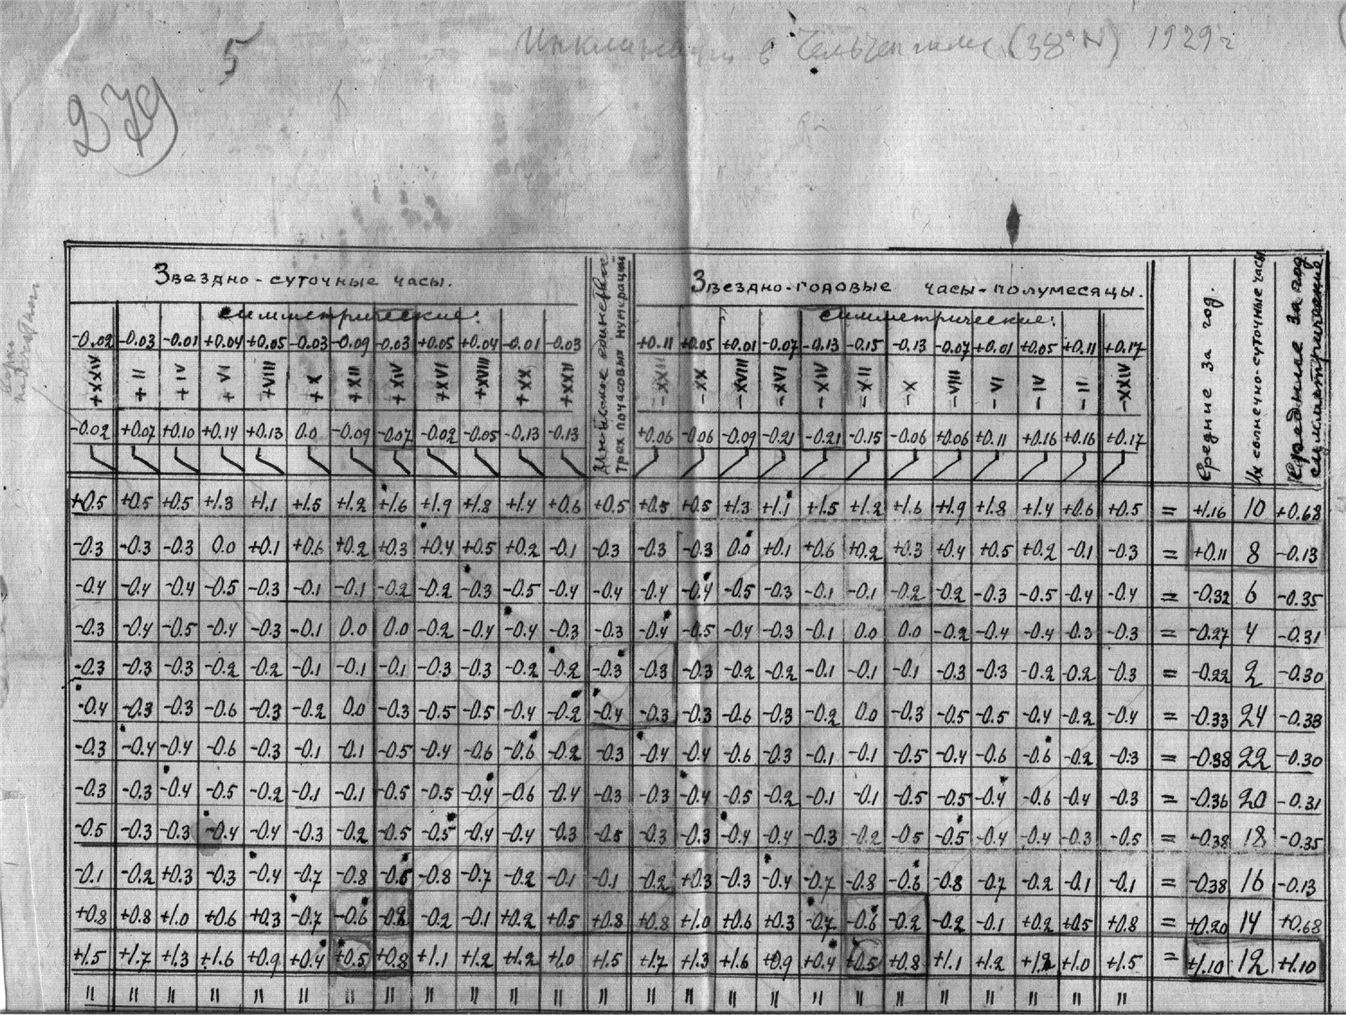 5
Инклинация в (38° N) 1929 г
279
Звездно-суточные часы.
Звездно-годовые часы-полумесяцы.
симметрические:
симметрические:
-0.02 -0.03 -0.01 +0.04 +0.05 -0.03 -0.09 -0.03 +0.05 +0.04 -0.01 -0.03 +0.11 +0.05 +0.01 -0.07 -0.13 -0.15 -0.13 -0.07 +0.01 +0.05 +0.11 +0.17
+XXIV +II +IV +VI +VIII +X +XII +XIV +XVI +XVIII +XX +XXII -XXII -XX -XVIII -XVI -XIV -XII -X -VIII -VI -IV -II -XXIV
трех почасовых нумераций
Средние за год.
Их солнечно-суточные часы
Средние за год симметрические
-0.02 +0.07 +0.10 +0.14 +0.13 0.0 -0.09 -0.07 -0.02 -0.05 -0.13 -0.13 +0.06 -0.06 -0.09 -0.21 -0.21 -0.15 -0.06 +0.06 +0.11 +0.16 +0.16 +0.17
+0.5 +0.5 +0.5 +1.3 +1.1 +1.5 +1.2 +1.6 +1.9 +1.8 +1.4 +0.6 +0.5 +0.5 +0.5 +1.3 +1.1 +1.5 +1.2 +1.6 +1.9 +1.8 +1.4 +0.6 +0.5 = +1.16 10 +0.68
-0.3 -0.3 -0.3 0.0 +0.1 +0.6 +0.2 +0.3 +0.4 +0.5 +0.2 -0.1 -0.3 -0.3 -0.3 0.0 +0.1 +0.6 +0.2 +0.3 +0.4 +0.5 +0.2 -0.1 -0.3 = +0.11 8 -0.13
-0.4 -0.4 -0.4 -0.5 -0.3 -0.1 -0.1 -0.2 -0.2 -0.3 -0.5 -0.4 -0.4 -0.4 -0.4 -0.5 -0.3 -0.1 -0.1 -0.2 -0.2 -0.3 -0.5 -0.4 -0.4 = -0.32 6 -0.35
-0.3 -0.4 -0.5 -0.4 -0.3 -0.1 0.0 0.0 -0.2 -0.4 -0.4 -0.3 -0.3 -0.4 -0.5 -0.4 -0.3 -0.1 0.0 0.0 -0.2 -0.4 -0.4 -0.3 -0.3 = -0.27 4 -0.31
-0.3 -0.3 -0.3 -0.2 -0.2 -0.1 -0.1 -0.1 -0.3 -0.3 -0.2 -0.2 -0.3 -0.3 -0.3 -0.2 -0.2 -0.1 -0.1 -0.1 -0.3 -0.3 -0.2 -0.2 -0.3 = -0.22 2 -0.30
-0.4 -0.3 -0.3 -0.6 -0.3 -0.2 0.0 -0.3 -0.5 -0.5 -0.4 -0.2 -0.4 -0.3 -0.3 -0.6 -0.3 -0.2 0.0 -0.3 -0.5 -0.5 -0.4 -0.2 -0.4 = -0.33 24 -0.38
-0.3 -0.4 -0.4 -0.6 -0.3 -0.1 -0.1 -0.5 -0.4 -0.6 -0.6 -0.2 -0.3 -0.4 -0.4 -0.6 -0.3 -0.1 -0.1 -0.5 -0.4 -0.6 -0.6 -0.2 -0.3 = -0.38 22 -0.30
-0.3 -0.3 -0.4 -0.5 -0.2 -0.1 -0.1 -0.5 -0.5 -0.4 -0.6 -0.4 -0.3 -0.3 -0.4 -0.5 -0.2 -0.1 -0.1 -0.5 -0.5 -0.4 -0.6 -0.4 -0.3 = -0.36 20 -0.31
-0.5 -0.3 -0.3 -0.4 -0.4 -0.3 -0.2 -0.5 -0.5 -0.4 -0.4 -0.3 -0.5 -0.3 -0.3 -0.4 -0.4 -0.3 -0.2 -0.5 -0.5 -0.4 -0.4 -0.3 -0.5 = -0.38 18 -0.35
-0.1 -0.2 +0.3 -0.3 -0.4 -0.7 -0.8 -0.6 -0.8 -0.7 -0.2 -0.1 -0.1 -0.2 +0.3 -0.3 -0.4 -0.7 -0.8 -0.6 -0.8 -0.7 -0.2 -0.1 -0.1 = -0.38 16 -0.13
+0.8 +0.8 +1.0 +0.6 +0.3 -0.7 -0.6 -0.2 -0.2 -0.1 +0.2 +0.5 +0.8 +0.8 +1.0 +0.6 +0.3 -0.7 -0.6 -0.2 -0.2 -0.1 +0.2 +0.5 +0.8 = +0.20 14 +0.68
+1.5 +1.7 +1.3 +1.6 +0.9 +0.4 +0.5 +0.8 +1.1 +1.2 +1.2 +1.0 +1.5 +1.7 +1.3 +1.6 +0.9 +0.4 +0.5 +0.8 +1.1 +1.2 +1.2 +1.0 +1.5 = +1.10 12 +1.10
" " " " " " " " " " " " " " " " " " " " " " " " "